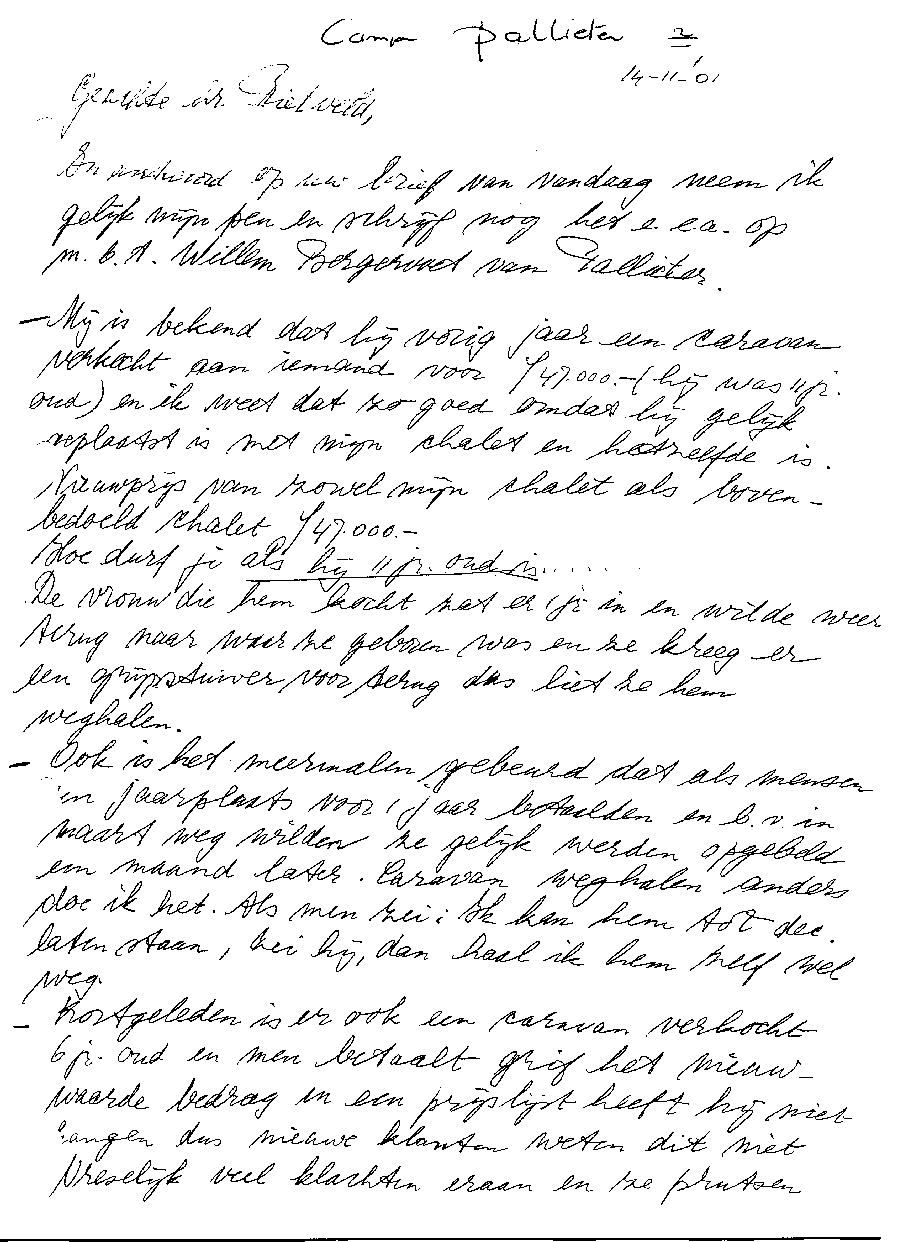 Camp Pallieter 2
14-11-'01
Geachte hr. Rietveld,
In antwoord op uw brief van vandaag neem ik
gelijk mijn pen en schrijf nog het e.e.a. op
m.b.t. Willem Bergervoet van Pallieter.
- Mij is bekend dat hij vorig jaar een caravan
verkocht aan iemand voor ƒ47.000.- (hij was 11 jr.
oud) en ik weet dat zo goed omdat hij gelijk
geplaatst is met mijn chalet en hetzelfde is.
Nieuwprijs van zowel mijn chalet als boven-
bedoeld chalet ƒ47.000.-
Hoe durf je als hij 11 jr. oud is......
De vrouw die hem kocht zat er 1 jr in en wilde weer
terug naar waar ze geboren was en ze kreeg er
een grijpstuiver voor terug dus liet ze hem
weghalen.
- Ook is het meermalen gebeurd dat als mensen
'n jaarplaats voor 1 jaar betaalden en b.v. in
maart weg wilden ze gelijk werden opgebeld
een maand later. Caravan weghalen anders
doe ik het. Als men zei: Ik kan hem tot dec.
laten staan, zei hij, dan haal ik hem zelf wel
weg.
- Kortgeleden is er ook een caravan verkocht
6 jr. oud en men betaalt grif het nieuw-
waarde bedrag en een prijslijst heeft hij niet
hangen dus nieuwe klanten weten dit niet
Vreselijk veel klachten eraan en ze prutsen